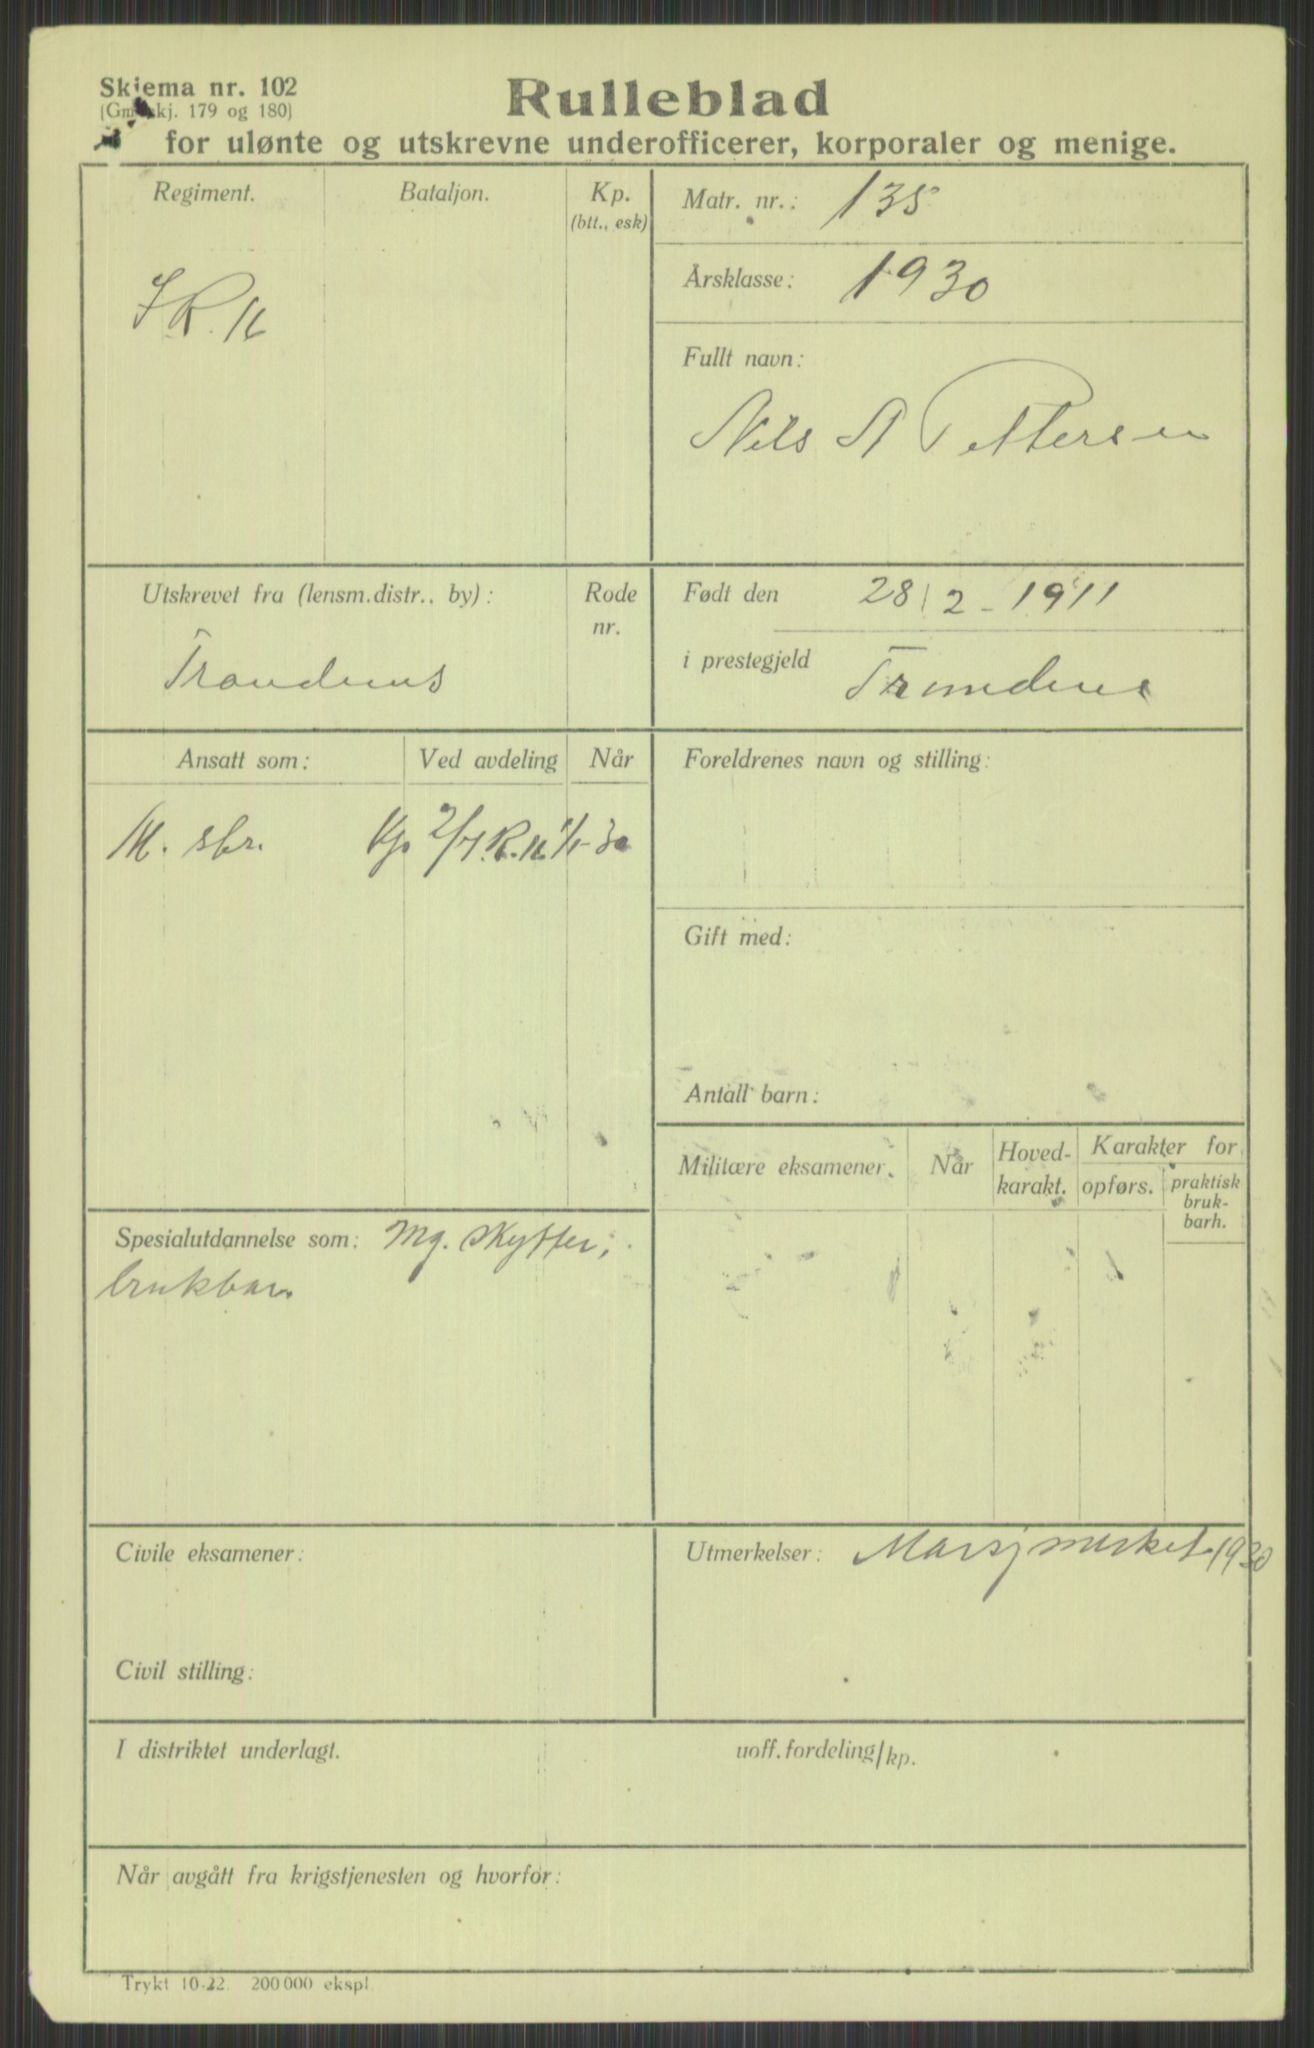 Skjema nr. 102
(Gml. skj. 179 og 180)
Rulleblad
for ulønte og utskrevne underofficerer, korporaler og menige.
Regiment.
Bataljon.
Kp.
(btt., esk)
I.R. 16
Matr. nr.: 135
Årsklasse: 1930
Fullt navn:
Nils A Pettersen
Utskrevet fra (lensm.distr., by):
Trondenes
Rode
nr.
Født den 28/2-1911
i prestegjeld Trondenes
Ansatt som:
Ved avdeling
Når
M. sbr. Kp 2/I.R. 16 1/1-30
Foreldrenes navn og stilling:
Gift med:
Antall barn:
Militære eksamener.
Når
Hoved-
karakt.
Karakter for
opførs.
praktisk
bruk-
barh.
Spesialutdannelse som: Mg. skytter,
brukbar.
Civile eksamener:
Civil stilling:
Utmerkelser: Marsjmerket 1930
I distriktet underlagt.
uoff.fordeling/kp.
Når avgått fra krigstjenesten og hvorfor:
Trykt 10-22. 200 000 ekspl.